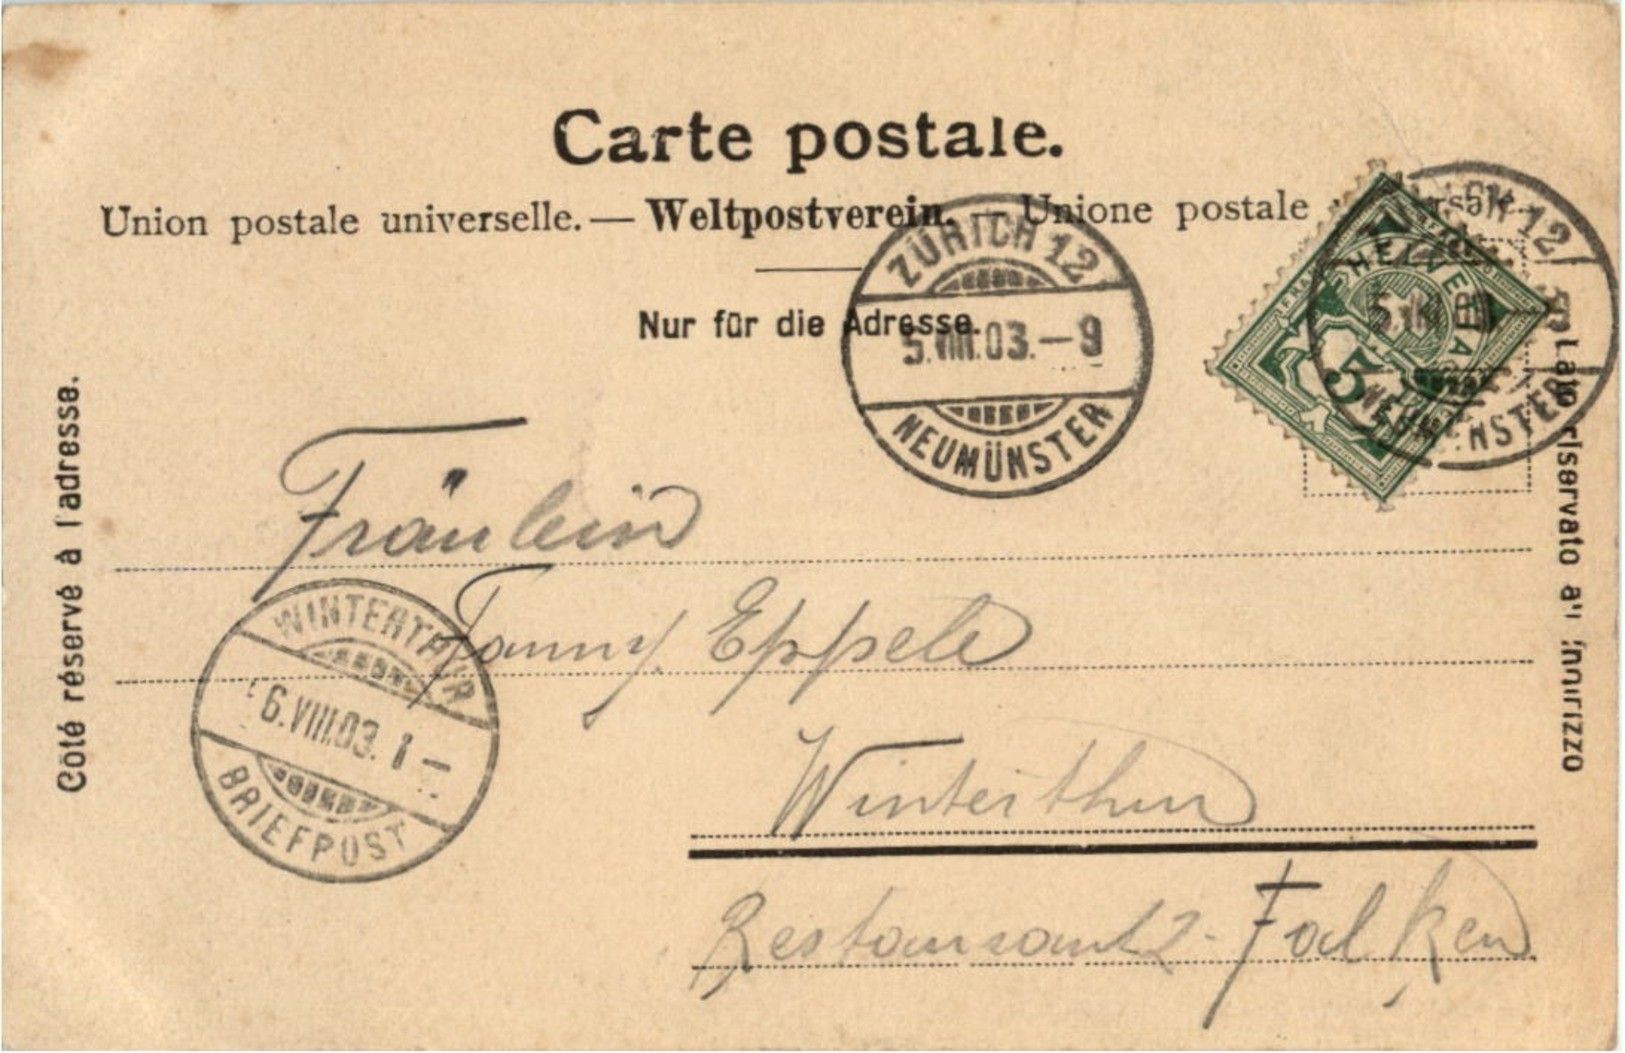 Carte postale.
Union postale universelle. — Weltpostverein. — Unione postale
Nur für die Adresse.
Côté réservé à l'adresse.
Lato riservato all' indirizzo
ZÜRICH 12
5.VIII.03.—9
NEUMÜNSTER
HELVETIA
5
12
Fräulein
Fanny Eppele
Winterthur
Restaurant z. Falken
WINTERTHUR
6.VIII.03. 1—
BRIEFPOST